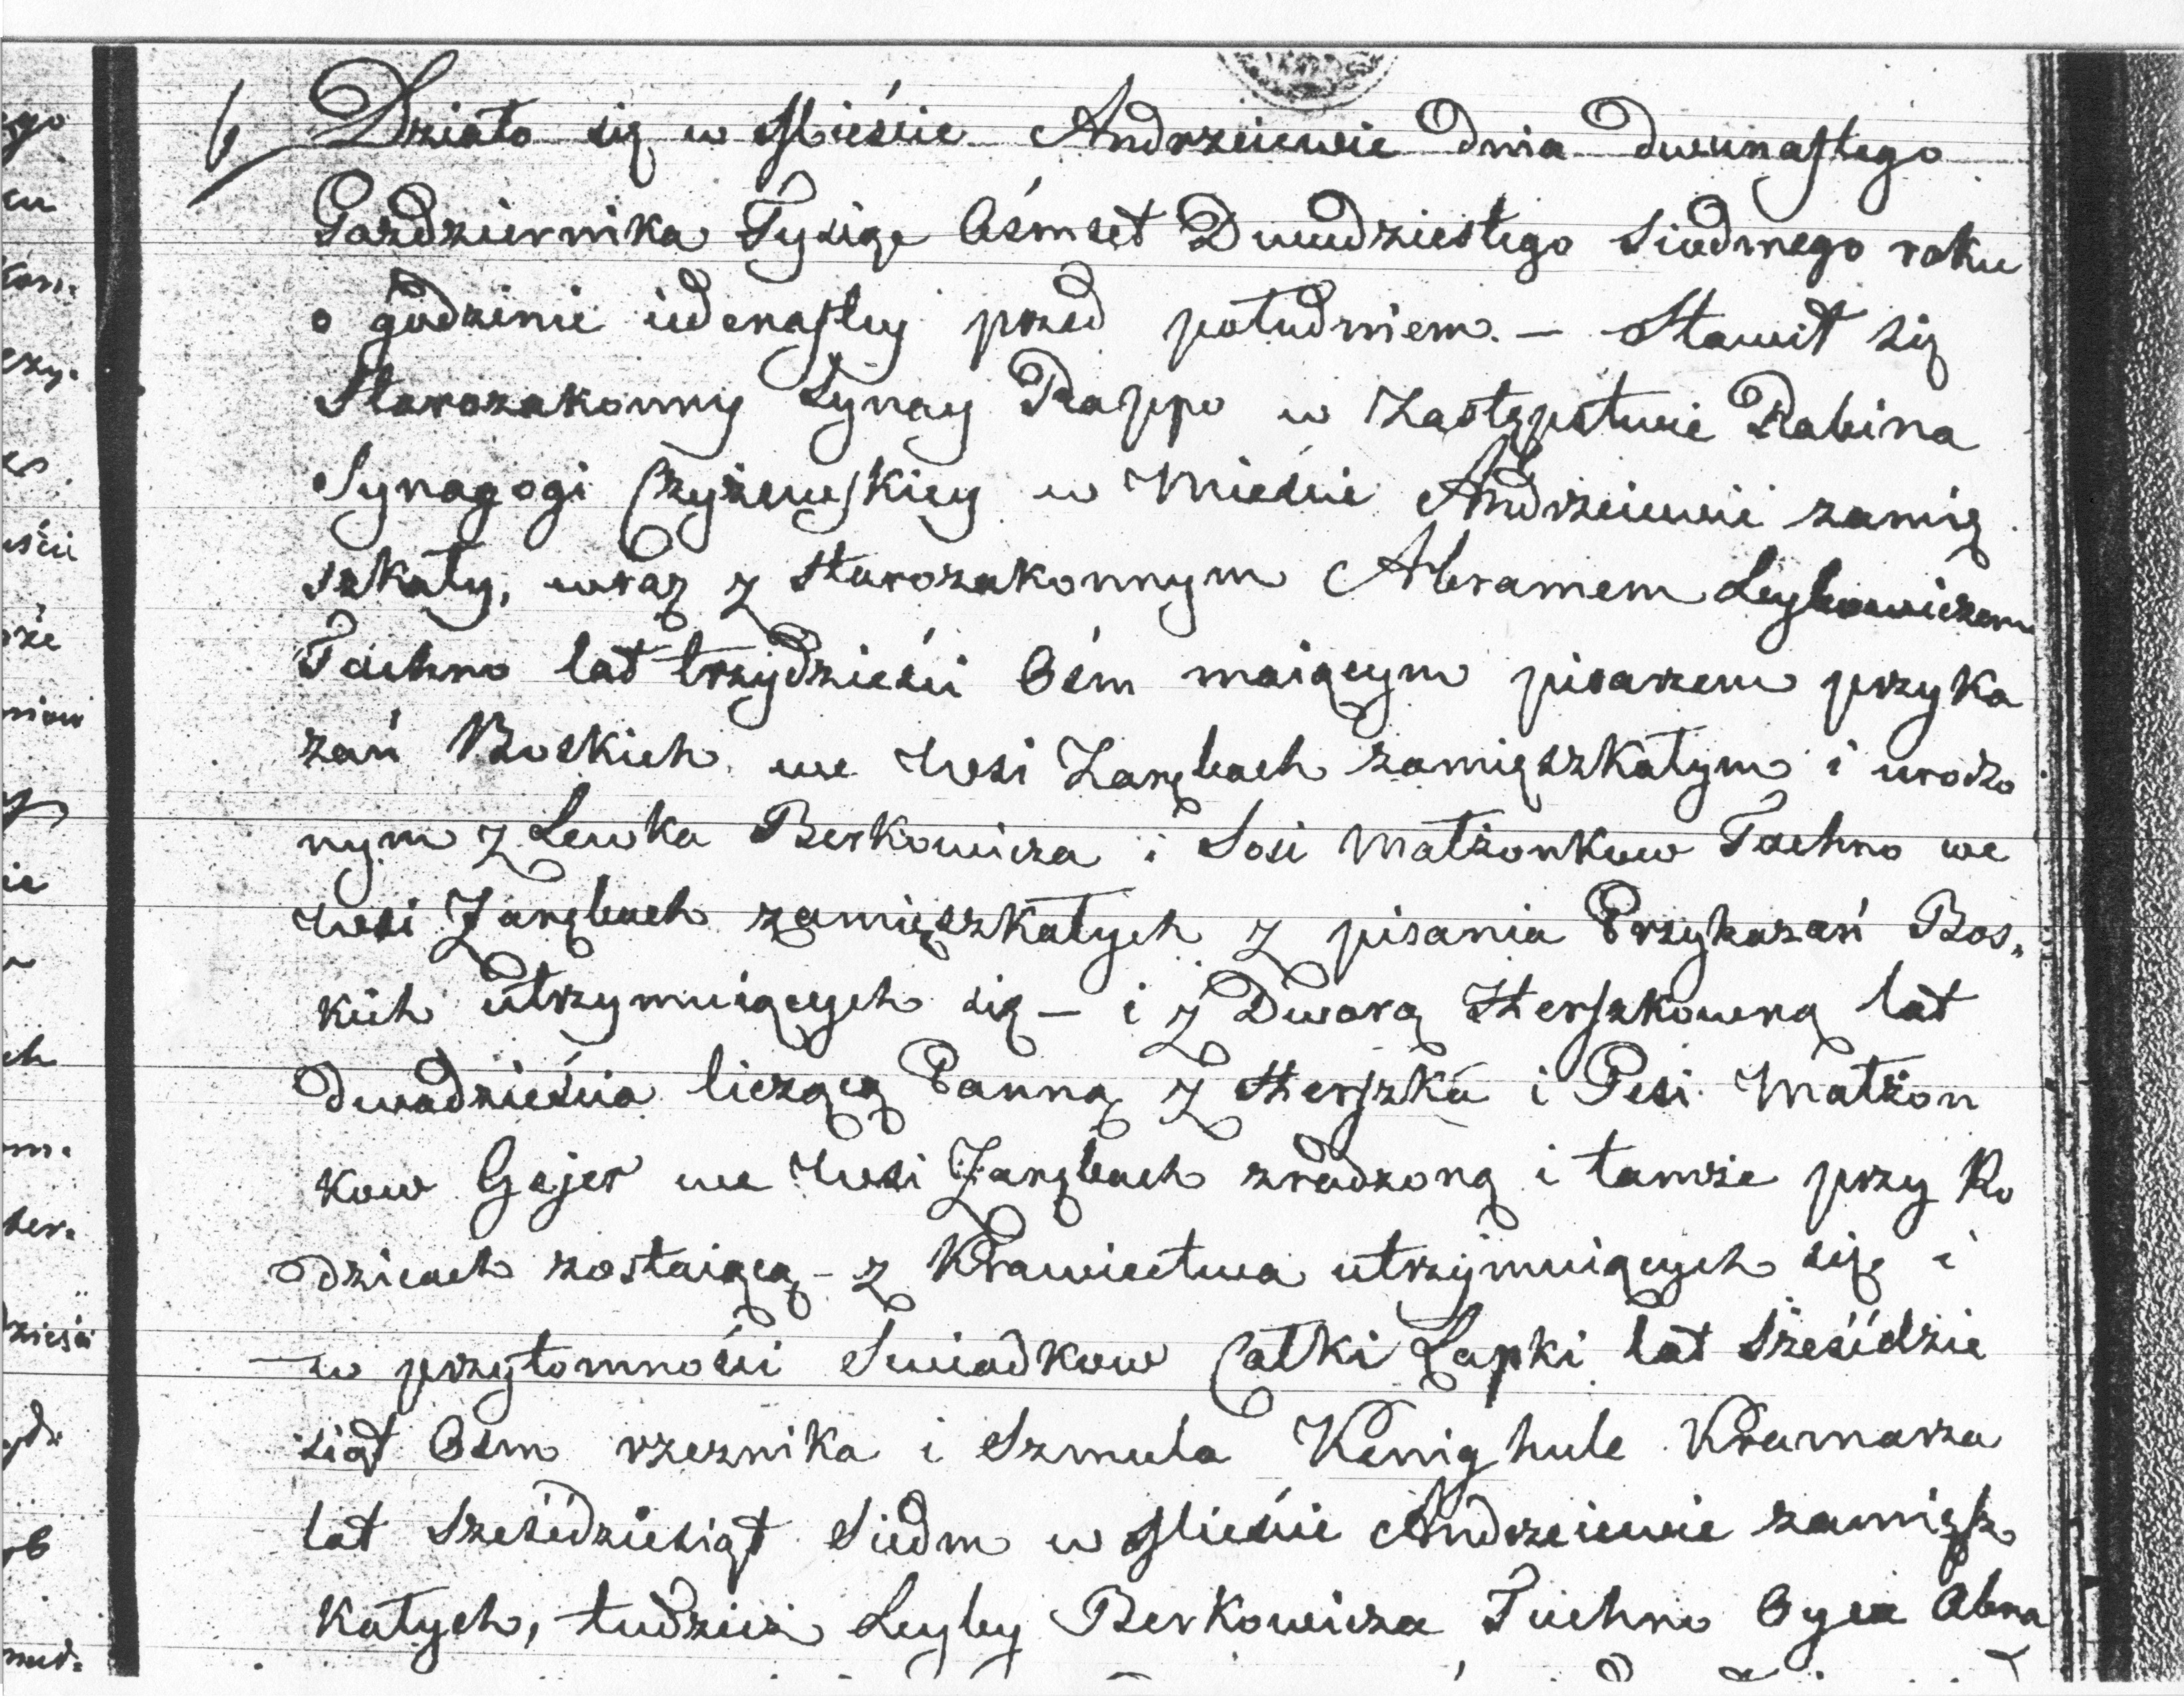 6 Działo się w Mieście Andrzeiewie dnia dwunastego
Pazdziernika Tysiąc Osmset Dwudziestego Siodmego roku
o godzinie iedenastey przed południem. — Stawił się
Starozakonny Zynay Rappo w Zastępstwie Rabina
Synagogi Czyżewskiey w Mieście Andrzeiewie zamię
szkały, wraz z starozakonnym Abramem Leybowiczem
Tuchno lat trzydzieści Ośm maiącym pisarzem przyka
zań Boskich we Wsi Zarębach zamięszkałym i urodzo
nym z Lewka Berkowicza i Sosi Małżonkow Tuchno we
Wsi Zarębach zamięszkałych z pisania Przykazań Bos„
kich utrzymuiących się — i z Dwora Herszkowną lat
dwadzieścia liczącą Panną z Herszka i Pesi Małżon
kow Gejer we Wsi Zarębach zrodzoną i tamże przy Ro
dzicach zostaiącą — z Krawiectwa utrzymuiących się i
w przytomności Swiadkow Całki Łapki lat Sześćdzie
siąt Osm rzeznika i Szmula Kenighule Kramarza
lat Sześćdziesiąt Siedm w Mieście Andrzeiewie zamięsz
kałych, tudzież Leyby Berkowicza Tuchno Oyca Abra